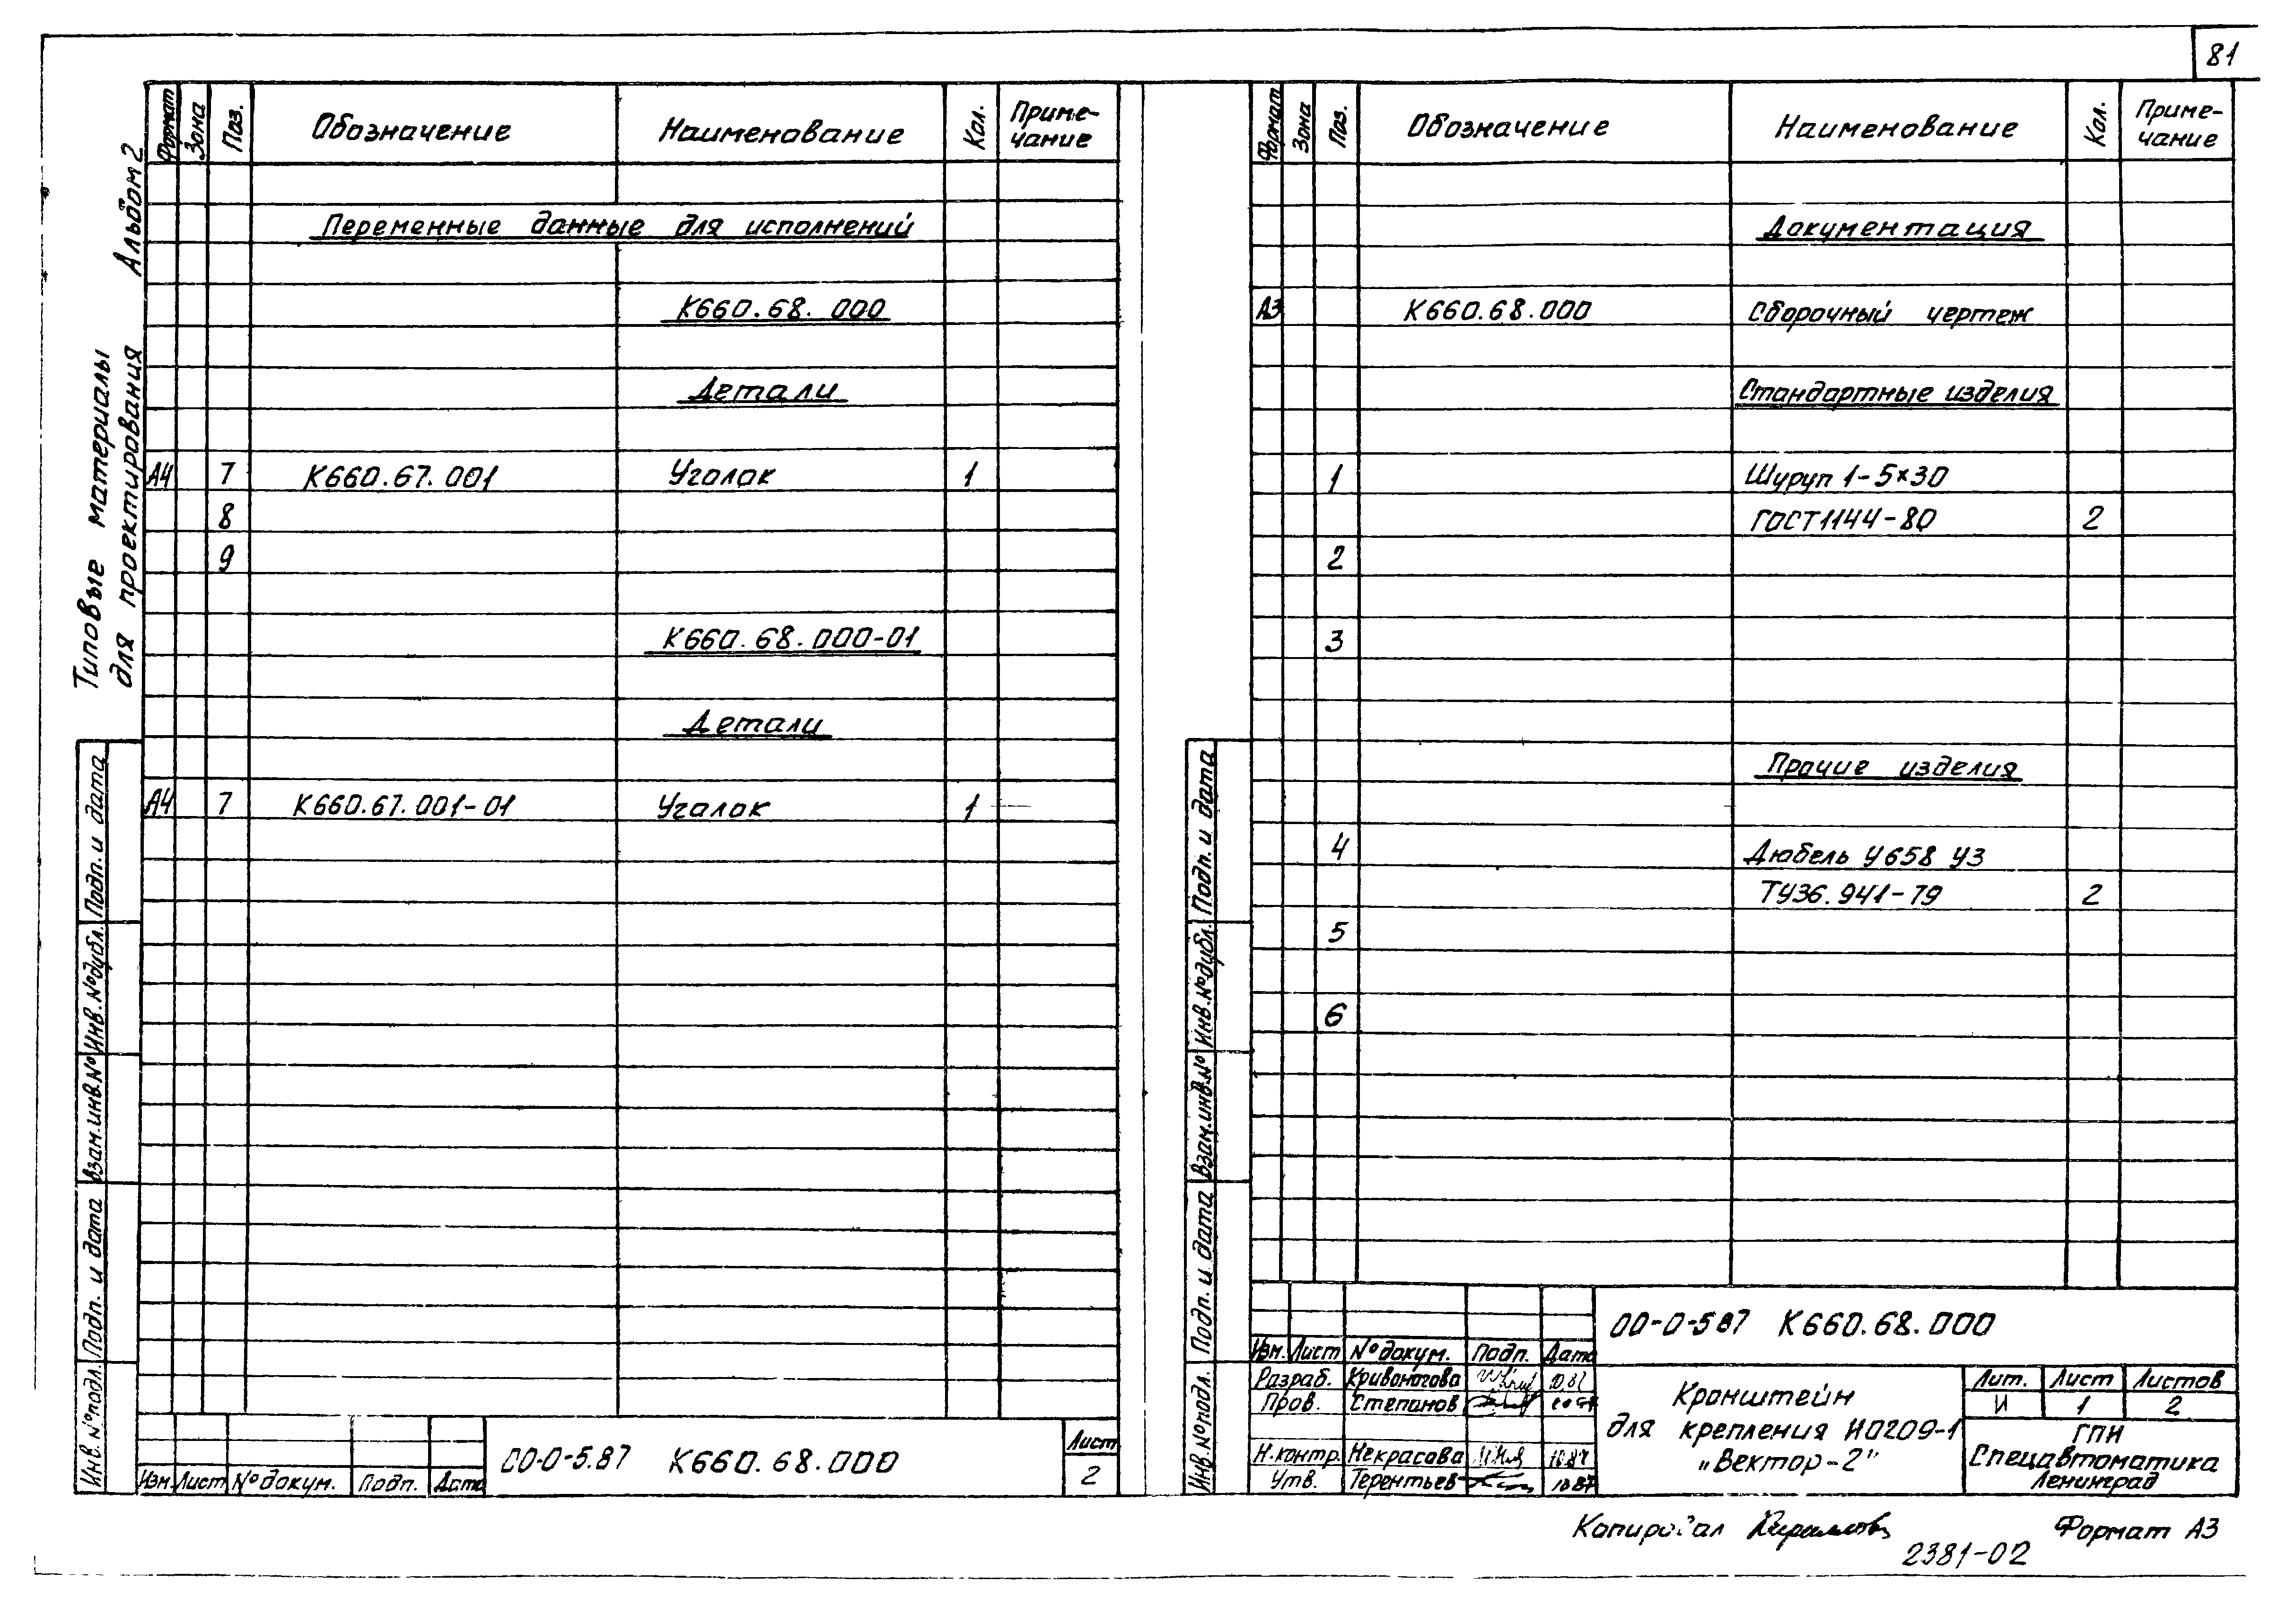 81
Типовые материалы
для проектирования
Альбом 2
Формат Зона Поз. Обозначение Наименование Кол. Приме-
чание
Переменные данные для исполнений
К660.68.000
Детали
А4 7 К660.67.001 Уголок 1
8
9
К660.68.000-01
Детали
А4 7 К660.67.001-01 Уголок 1
Подп. и дата
Инв. № дубл.
Взам. инв. №
Подп. и дата
Инв. № подл.
Изм. Лист № докум. Подп. Дата
00-0-5.87 К660.68.000
Лист
2
Формат Зона Поз. Обозначение Наименование Кол. Приме-
чание
Документация
А3 К660.68.000 Сборочный чертеж
Стандартные изделия
1 Шуруп 1-5×30
ГОСТ 1144-80 2
2
3
Прочие изделия
4 Дюбель У658 У3
ТУ36.941-79 2
5
6
Подп. и дата
Инв. № дубл.
Взам. инв. №
Подп. и дата
Инв. № подл.
00-0-587 К660.68.000
Изм. Лист № докум. Подп. Дата
Разраб. Кривоногова 10.87
Пров. Степанов
Н.контр. Некрасова 10.87
Утв. Терентьев 10.87
Кронштейн
для крепления НО209-1
„Вектор-2"
Лит. Лист Листов
И 1 2
ГПИ
Спецавтоматика
Ленинград
Копировал
Формат А3
2381-02